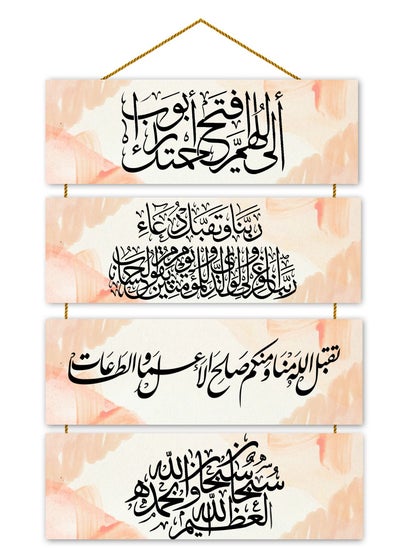 أللهم افتح لى أبواب رحمتك
ربنا وتقبل دعاء
ربنا اغفر لي ولوالدي وللمؤمنين يوم يقوم الحساب
تقبل الله منا ومنكم صالح الاعمال والطاعات
سبحان الله وبحمده سبحان الله العظيم